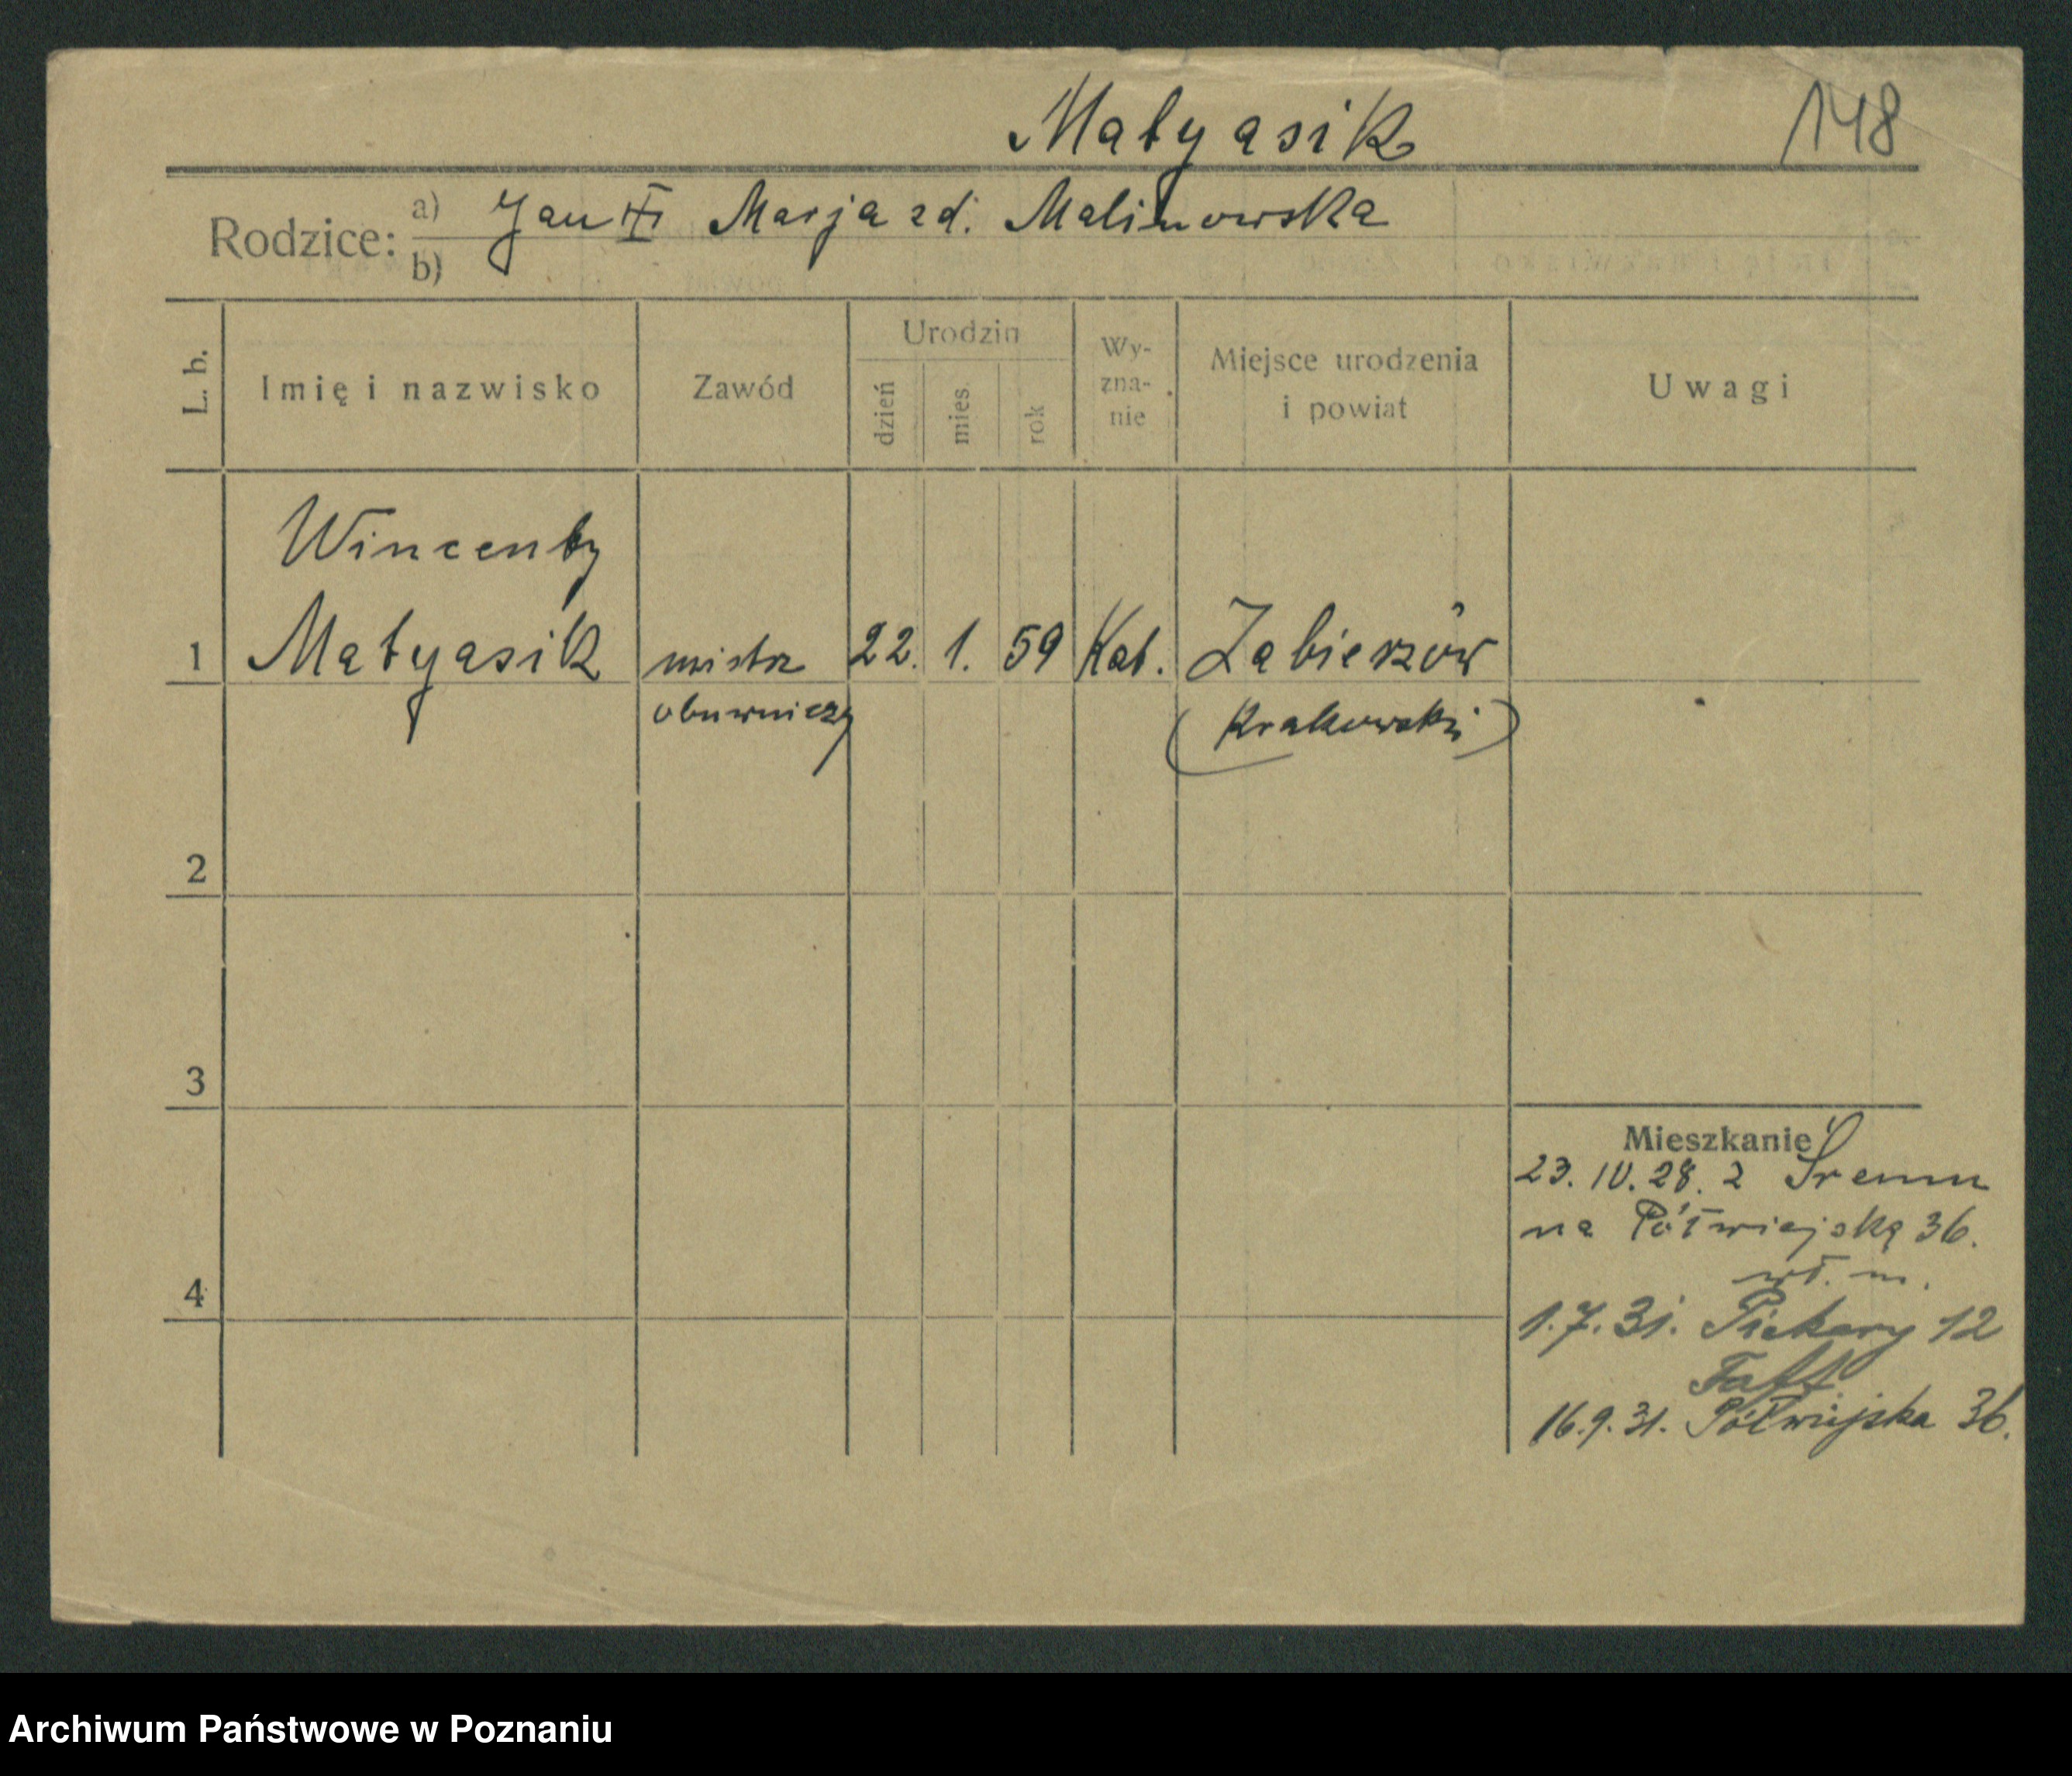 Matyasik 148
Rodzice: a) Jan Marja zd. Malinowska
b)
L. b. Imię i nazwisko Zawód Urodzin dzień mies. rok Wy-zna-nie Miejsce urodzenia i powiat Uwagi
Wincenty
1 Matyasik mistrz 22. 1. 59 Kat. Zabierzów
obuwniczy (Krakowski)
2
3
Mieszkanie
23. IV. 28. z Śremu
na Półwiejską 36.
4 wł. m.
1.7.31. Piekary 12
16.9.31. Półwiejska 36.
Archiwum Państwowe w Poznaniu